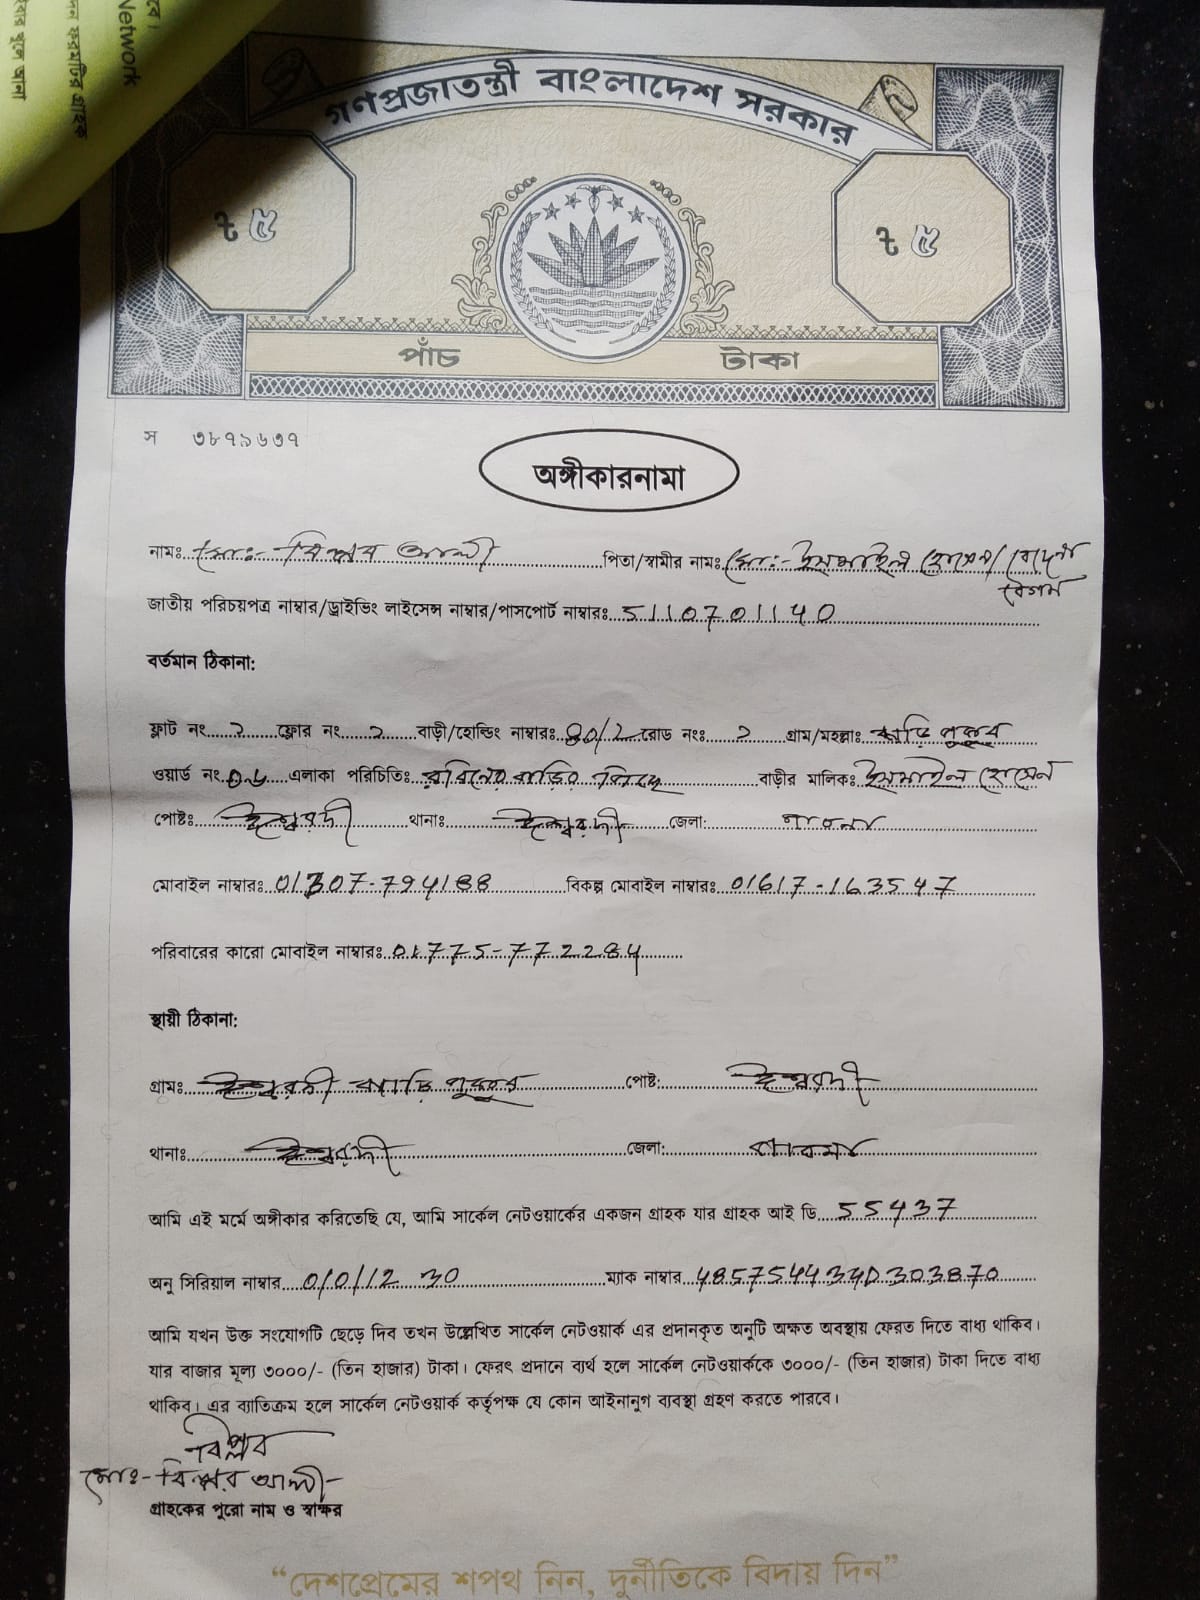 বে।
Network
দন ফরমটির গ্রাহক
বার খুলে আনা
গণপ্রজাতন্ত্রী বাংলাদেশ সরকার
ট ৫
ট ৫
পাঁচ টাকা
স ৩৮৭৯৬৩৭
অঙ্গীকারনামা
নামঃ মোঃ- বিপ্লব আলী পিতা/স্বামীর নামঃ মোঃ- ইসমাইল হোসেন/ বেদেনা
বেগম
জাতীয় পরিচয়পত্র নাম্বার/ড্রাইভিং লাইসেন্স নাম্বার/পাসপোর্ট নাম্বারঃ 5110701140
বর্তমান ঠিকানা:
ফ্লাট নং ২ ফ্লোর নং ২ বাড়ী/হোল্ডিং নাম্বারঃ রোড নংঃ ২ গ্রাম/মহল্লাঃ পুকুর
ওয়ার্ড নং ০৬ এলাকা পরিচিতিঃ রবিনের বাড়ির পিছে বাড়ীর মালিকঃ ইসমাইল হোসেন
পোষ্টঃ ঈশ্বরদী থানাঃ ঈশ্বরদী জেলা: পাবনা
মোবাইল নাম্বারঃ 01307-794188 বিকল্প মোবাইল নাম্বারঃ 01617-163547
পরিবারের কারো মোবাইল নাম্বারঃ 01775-772284
স্থায়ী ঠিকানা:
গ্রামঃ ঈশ্বরদী পুকুর পোষ্ট: ঈশ্বরদী
থানাঃ ঈশ্বরদী জেলা: পাবনা
আমি এই মর্মে অঙ্গীকার করিতেছি যে, আমি সার্কেল নেটওয়ার্কের একজন গ্রাহক যার গ্রাহক আই ডি 55437
অনু সিরিয়াল নাম্বার 010112 30 ম্যাক নাম্বার 485754434D303870
আমি যখন উক্ত সংযোগটি ছেড়ে দিব তখন উল্লেখিত সার্কেল নেটওয়ার্ক এর প্রদানকৃত অনুটি অক্ষত অবস্থায় ফেরত দিতে বাধ্য থাকিব।
যার বাজার মূল্য ৩০০০/- (তিন হাজার) টাকা। ফেরৎ প্রদানে ব্যর্থ হলে সার্কেল নেটওয়ার্ককে ৩০০০/- (তিন হাজার) টাকা দিতে বাধ্য
থাকিব। এর ব্যাতিক্রম হলে সার্কেল নেটওয়ার্ক কর্তৃপক্ষ যে কোন আইনানুগ ব্যবস্থা গ্রহণ করতে পারবে।
বিপ্লব
মোঃ- বিপ্লব আলী
গ্রাহকের পুরো নাম ও স্বাক্ষর
“দেশপ্রেমের শপথ নিন, দুর্নীতিকে বিদায় দিন”